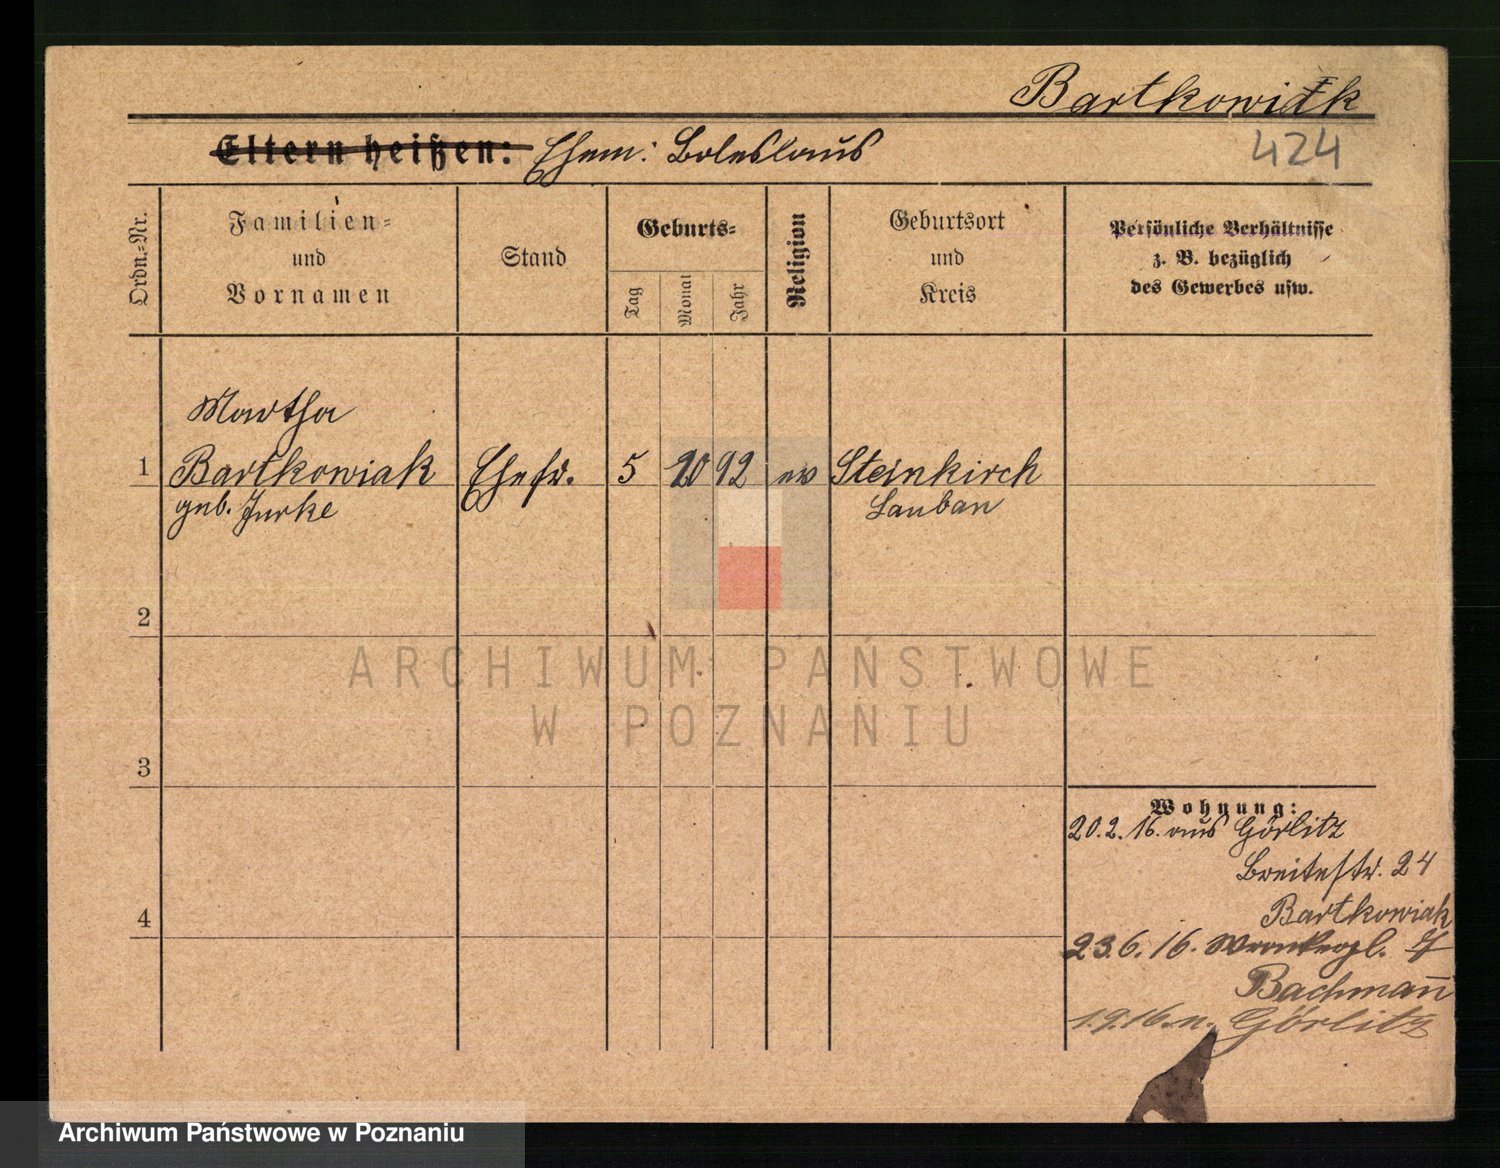 Bartkowiak
424
Eltern heißen: Ehem: Boleslaus
Ordn.-Nr.
Familien-
und
Vornamen
Stand
Geburts-
Tag
Monat
Jahr
Religion
Geburtsort
und
Kreis
Persönliche Verhältnisse
z. B. bezüglich
des Gewerbes usw.
Martha
1 Bartkowiak Ehefr. 5 10 92 ev Steinkirch
geb. Jurke Lauban
2
3
4
ARCHIWUM PAŃSTWOWE
W POZNANIU
Wohnung:
20.2.16. aus Görlitz
Breitestr. 24
Bartkowiak
23.6.16. Wronkerpl. 7
Bachmann
1.9.16. n. Görlitz
Archiwum Państwowe w Poznaniu